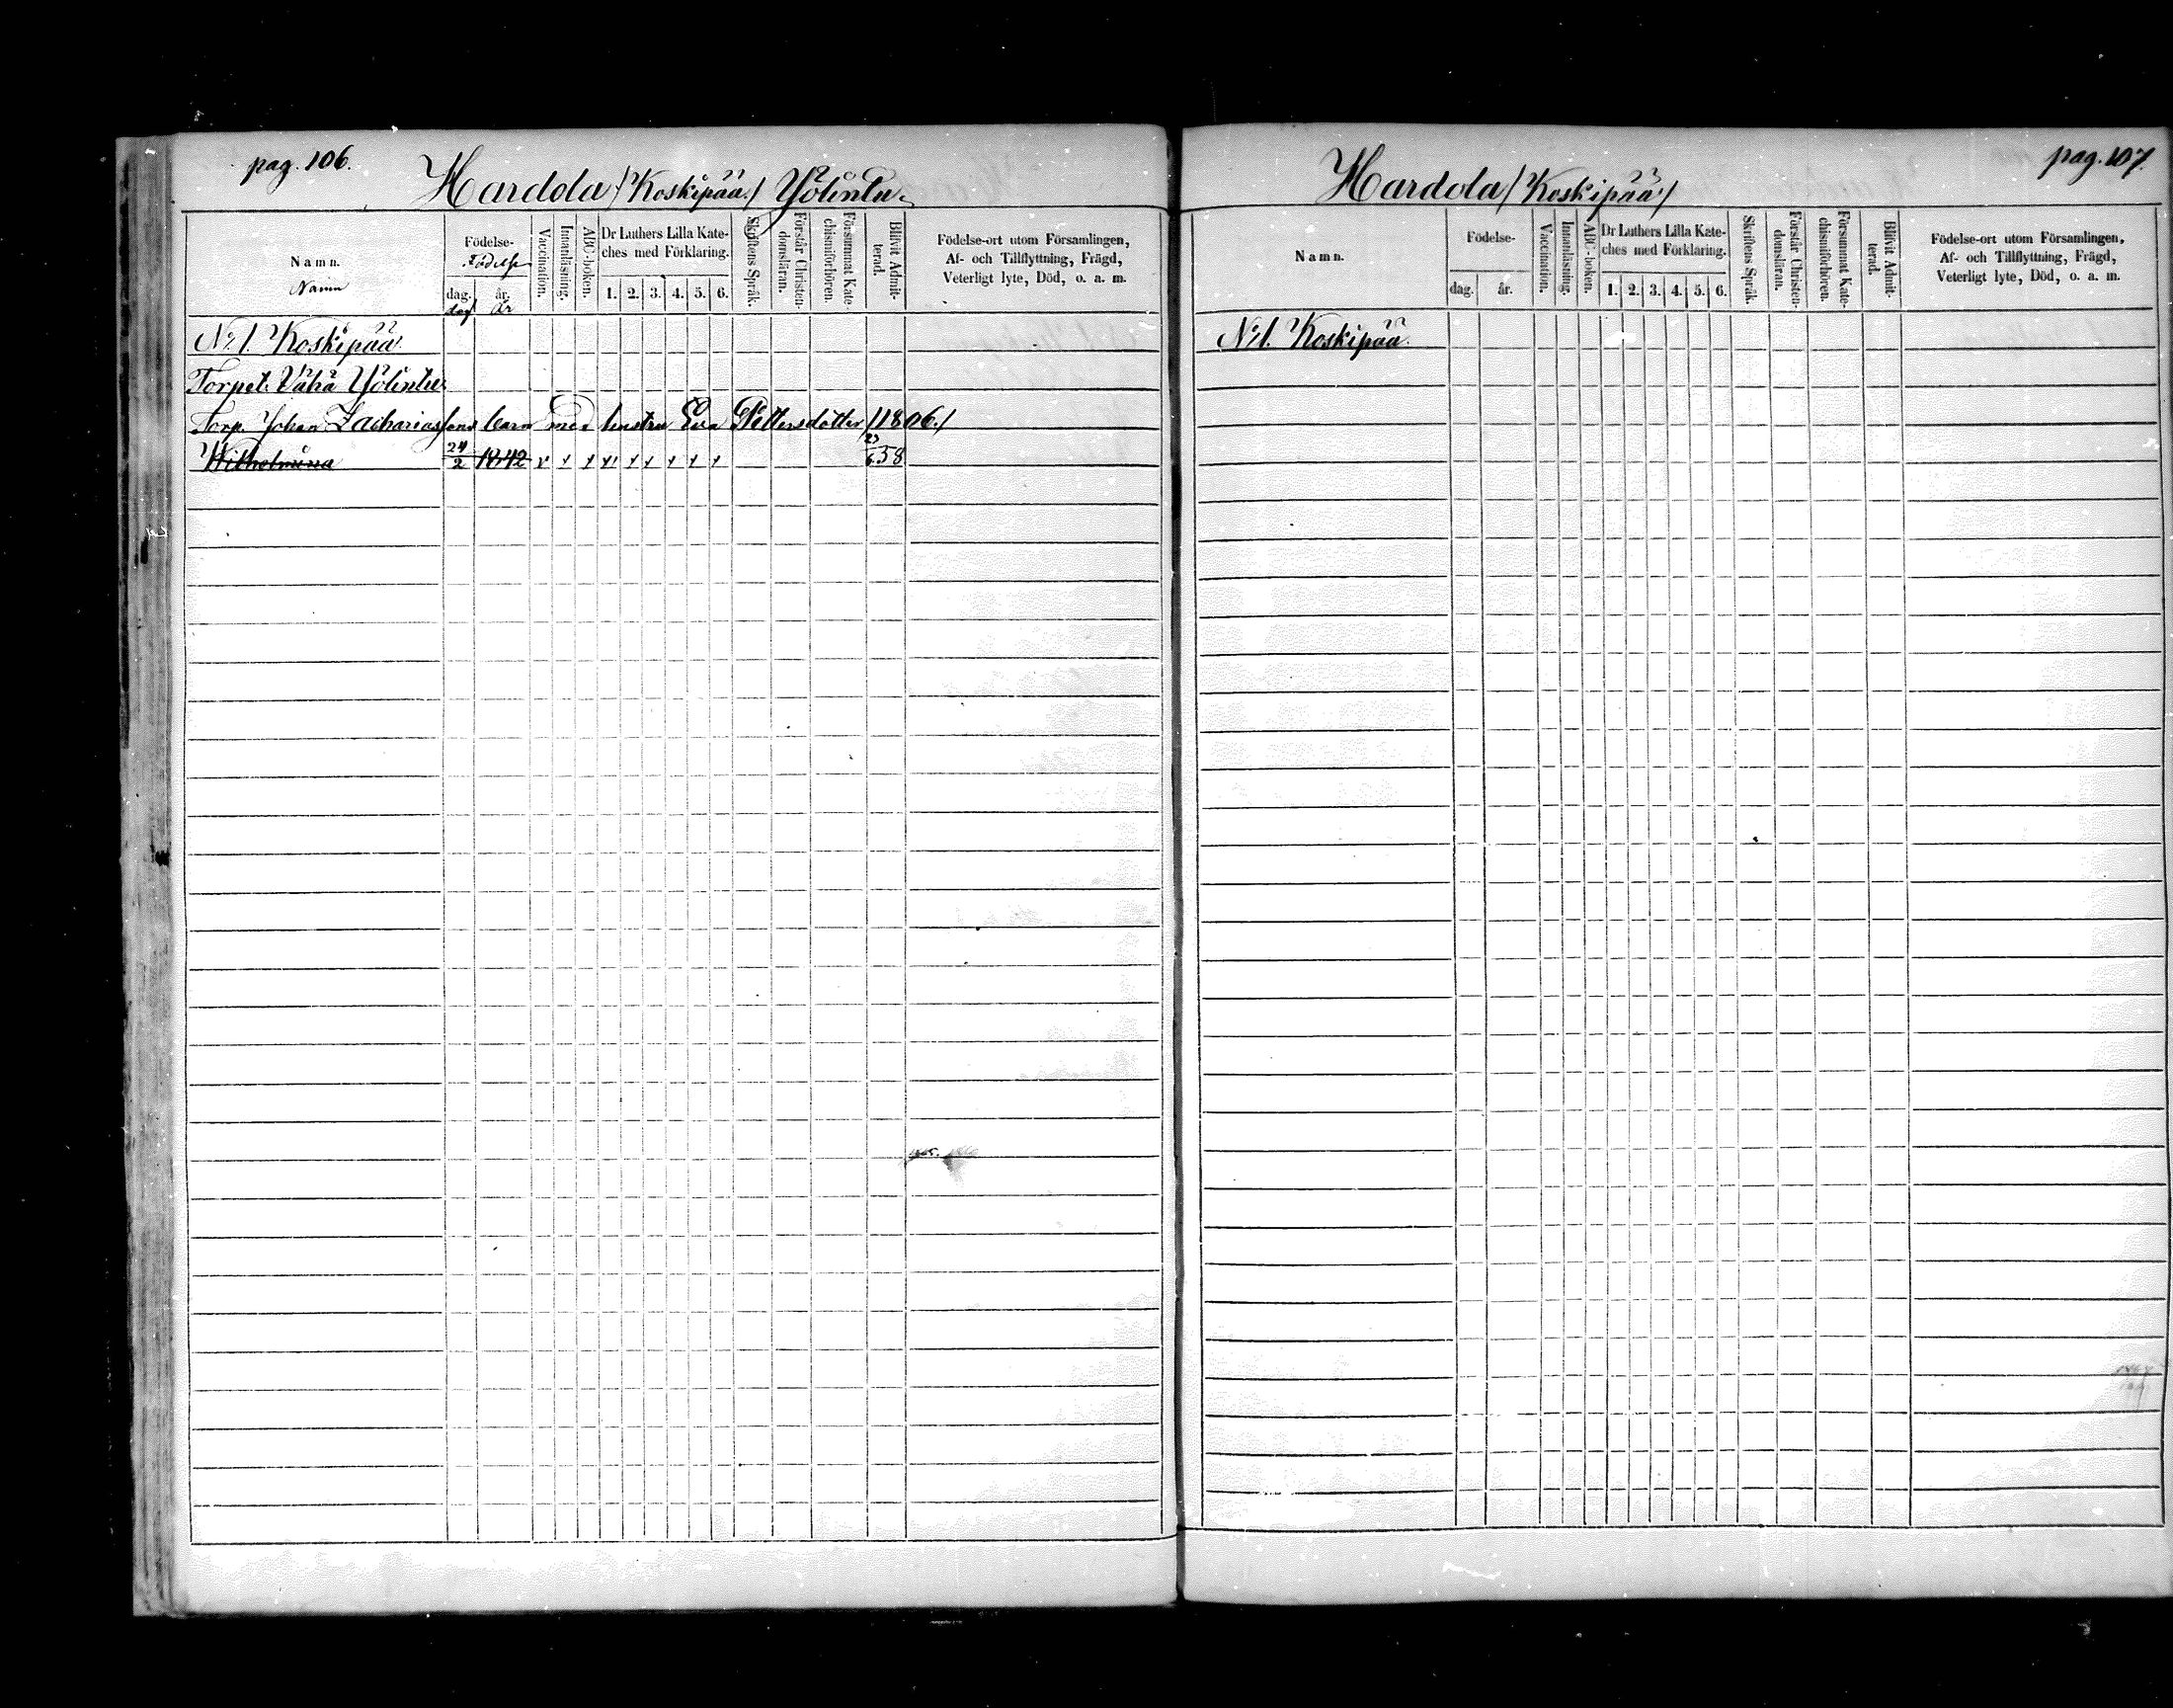 pag. 106.
Hardola /Koskipää/ Yölintu.
Namn.
Namn
Födelse-
Födelse
dag. år.
dag år
Vaccination.
Innanläsning.
ABC-boken.
Dr Luthers Lilla Kate-
ches med Förklaring.
1. 2. 3. 4. 5. 6.
Skriftens Språk.
Förstår Christen-
domsläran.
Försummat Kate-
chismiförhören.
Blifvit Admit-
terad.
Födelse-ort utom Församlingen,
Af- och Tillflyttning, Frägd,
Veterligt lyte, Död, o. a. m.
N:1. Koskipää.
Torpet. Vähä Yölintu
Torp. Johan Zachariassons barn med hustru Eva Pettersdotter /1806./
Wilhelmina 24/2 1842 x x x x x x x x x 23/6 58
pag. 107.
Hardola /Koskipää/
Namn.
Födelse-
dag. år.
Vaccination.
Innanläsning.
ABC-boken.
Dr Luthers Lilla Kate-
ches med Förklaring.
1. 2. 3. 4. 5. 6.
Skriftens Språk.
Förstår Christen-
domsläran.
Försummat Kate-
chismiförhören.
Blifvit Admit-
terad.
Födelse-ort utom Församlingen,
Af- och Tillflyttning, Frägd,
Veterligt lyte, Död, o. a. m.
N:1. Koskipää.